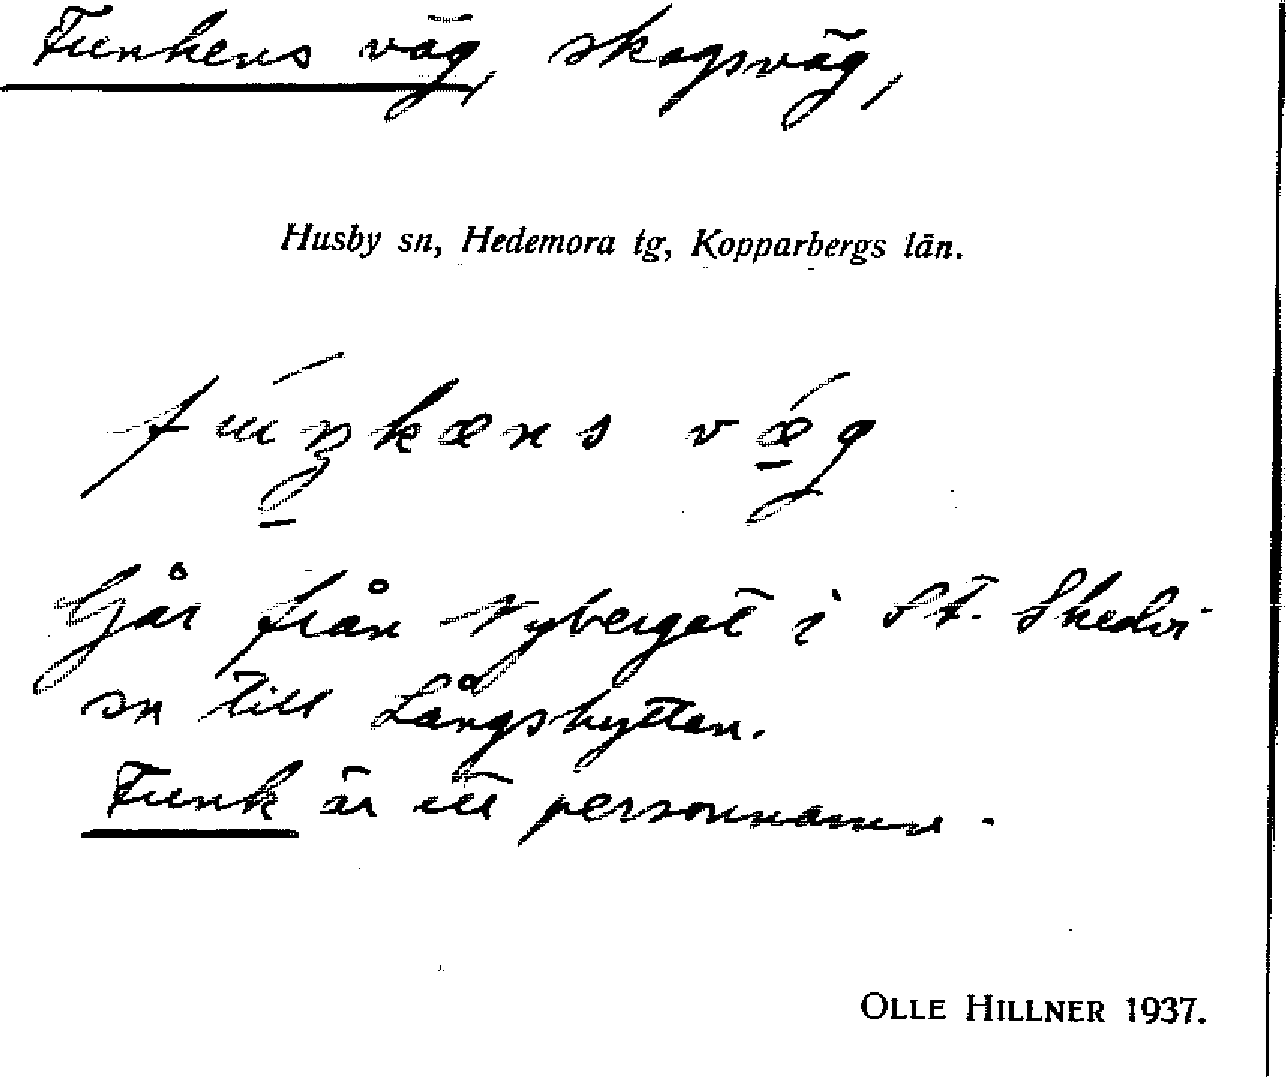 Funkens väg, skogsväg,
Husby sn, Hedemora tg, Kopparbergs län.
fúŋkæns vǽg
Går från Nyberget i St. Skedvi
sn till Långshyttan.
Funk är ett personnamn.
OLLE HILLNER 1937.